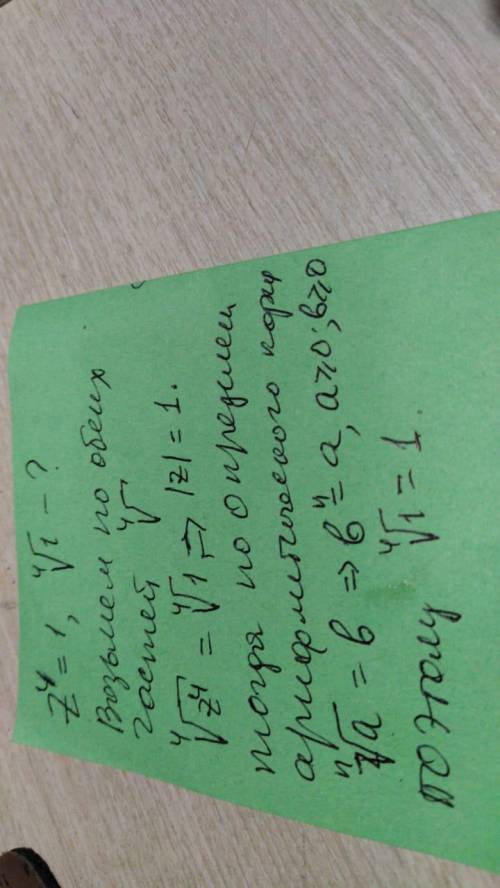 z⁴ = 1, ⁴√1 - ?
Возьмем по обеих
частей ⁴√
⁴√z⁴ = ⁴√1 ⇒ |z| = 1.
тогда по определен
арифметического корн
ⁿ√a = b ⇒ bⁿ = a, a ⩾ 0; b ⩾ 0
поэтому ⁴√1 = 1.